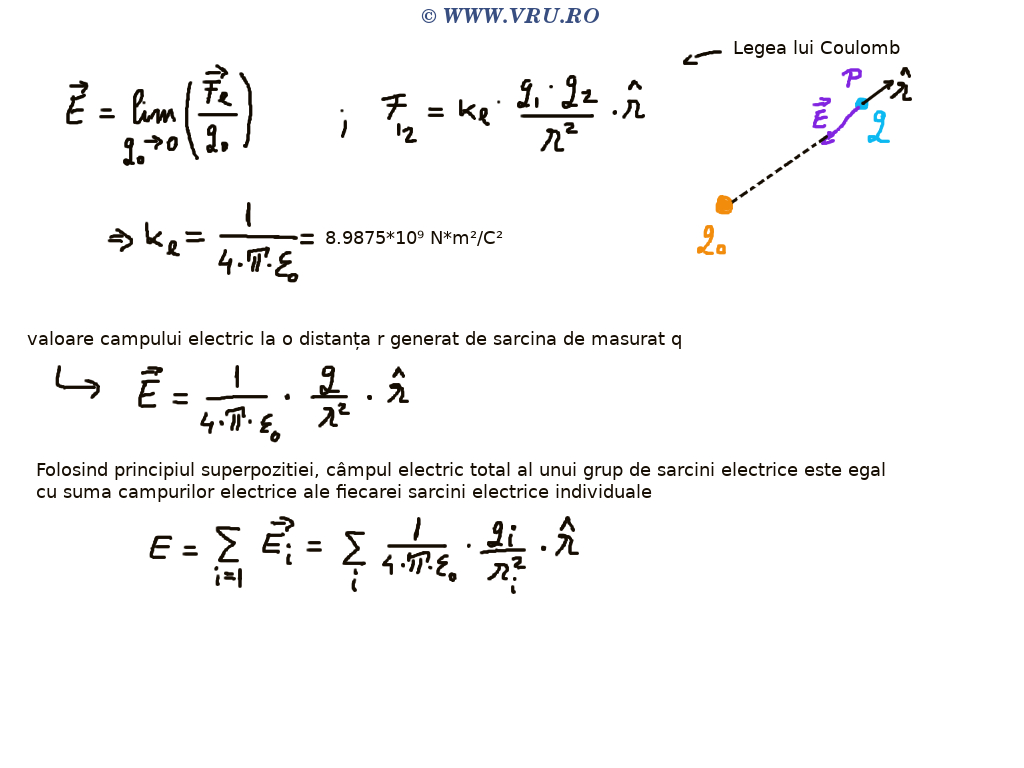 © WWW.VRU.RO
Legea lui Coulomb
E⃗ = lim q₀→0 (F⃗e / q₀) ; F₁₂ = ke · (q₁ · q₂ / r²) · r̂
P r̂
E⃗ q
q₀
⇒ ke = 1 / (4·π·ε₀) = 8.9875*10⁹ N*m²/C²
valoare campului electric la o distanța r generat de sarcina de masurat q
E⃗ = 1 / (4·π·ε₀) · q / r² · r̂
Folosind principiul superpozitiei, câmpul electric total al unui grup de sarcini electrice este egal
cu suma campurilor electrice ale fiecarei sarcini electrice individuale
E = Σ i=1 E⃗i = Σ i 1 / (4·π·ε₀) · qi / ri² · r̂